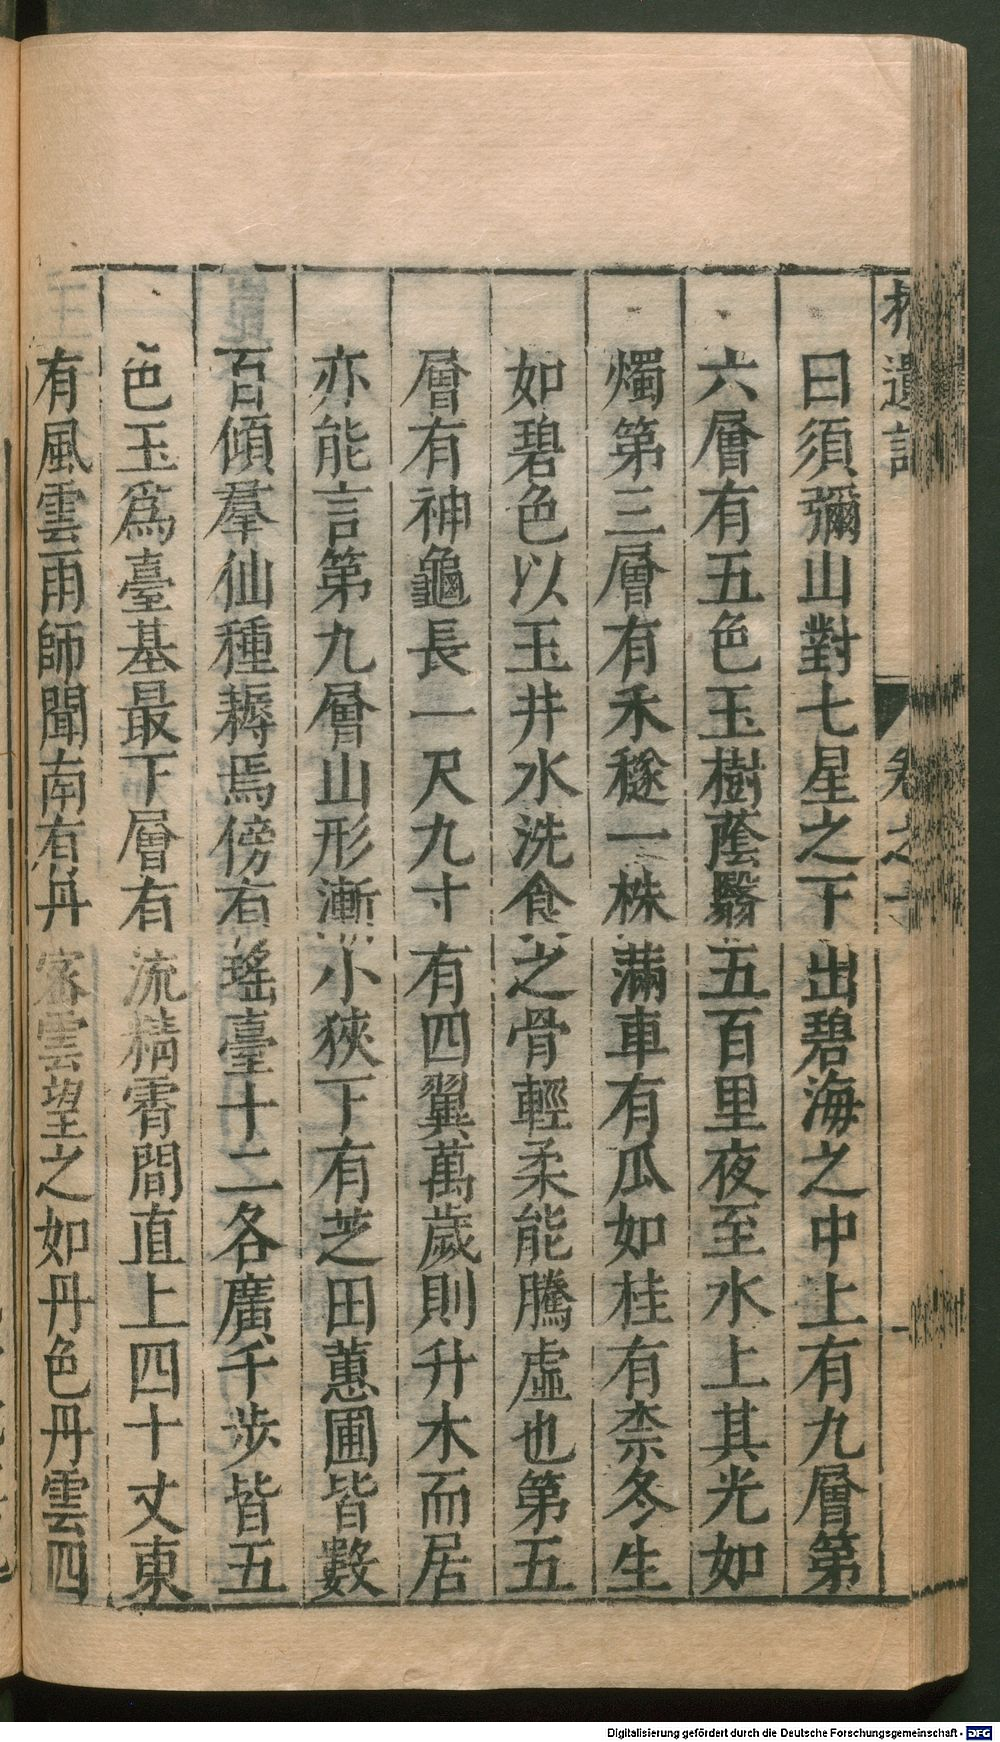 拾遺記 卷之十 一
曰須彌山對七星之下出碧海之中上有九層第
六層有五色玉樹蔭翳五百里夜至水上其光如
燭第三層有禾穟一株滿車有瓜如桂有柰冬生
如碧色以玉井水洗食之骨輕柔能騰虛也第五
層有神龜長一尺九寸有四翼萬歲則升木而居
亦能言第九層山形漸小狹下有芝田蕙圃皆數
百傾羣仙種耨焉傍有瑤臺十二各廣千步皆五
色玉爲臺基最下層有流精霄間直上四十丈東
有風雲雨師聞南有丹密雲望之如丹色丹雲四
Digitalisierung gefördert durch die Deutsche Forschungsgemeinschaft - DFG